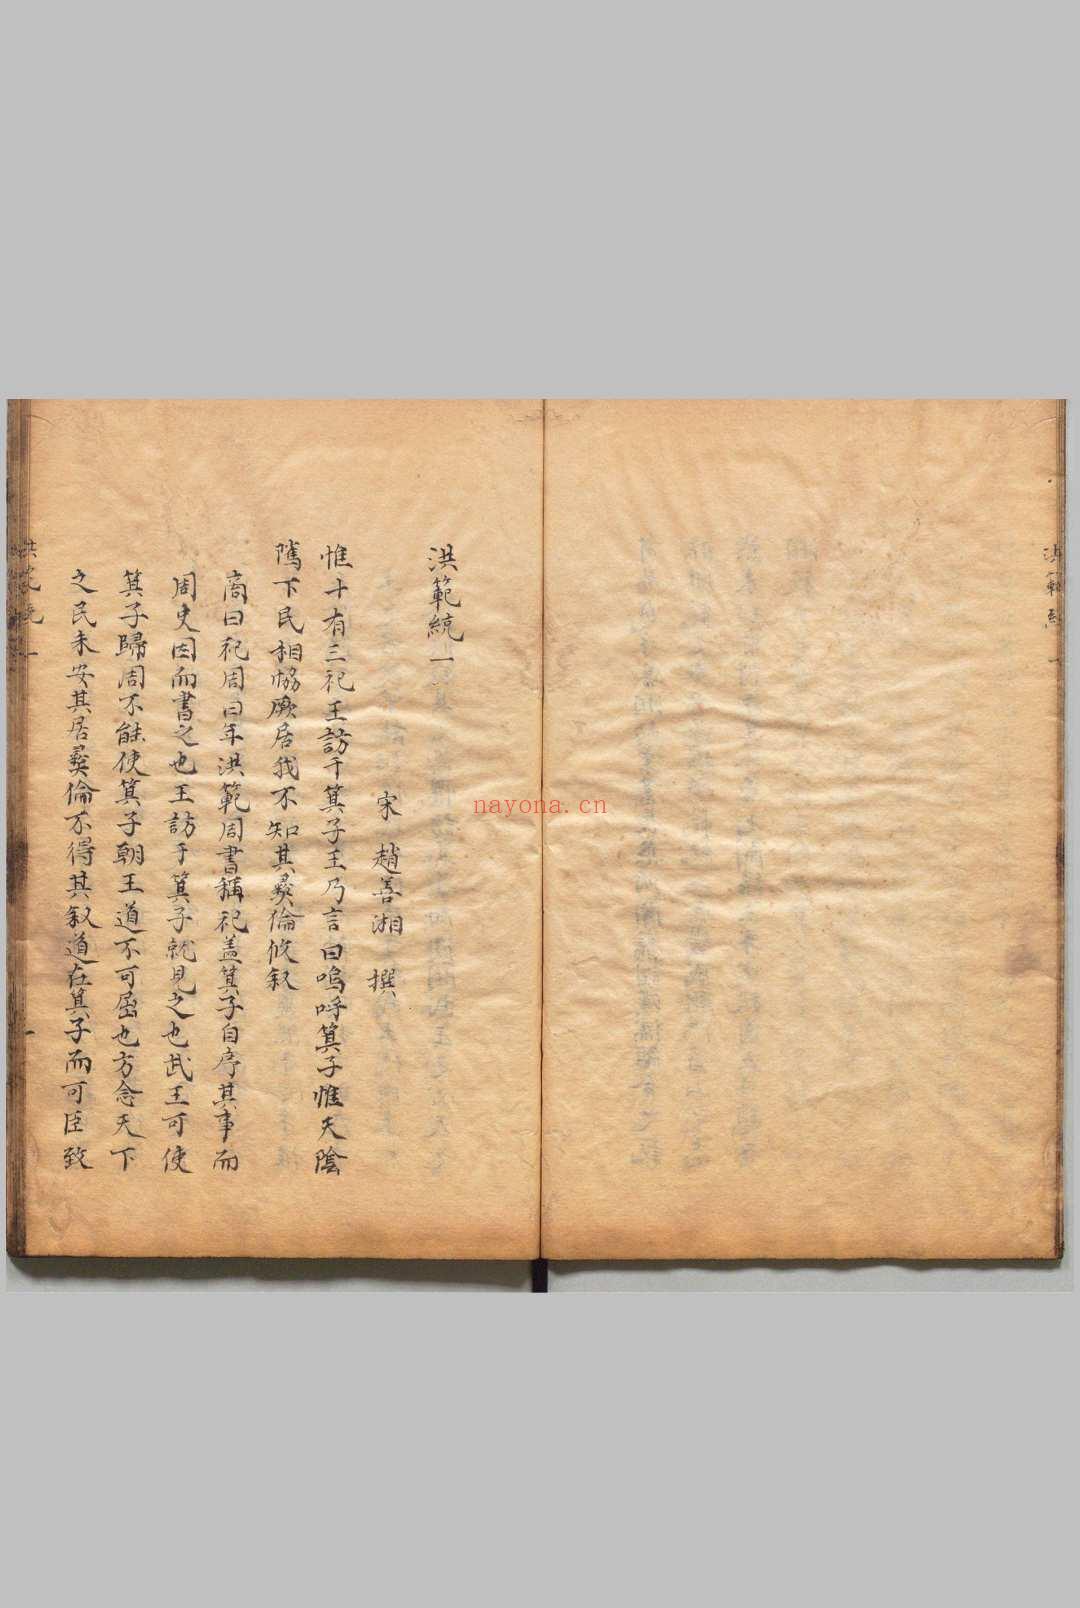 洪範統一
宋 趙善湘 撰
惟十有三祀王訪于箕子王乃言曰嗚呼箕子惟天陰
隲下民相協厥居我不知其彝倫攸叙
商曰祀周曰年洪範周書稱祀盖箕子自序其事而
周史因而書之也王訪于箕子就見之也武王可使
箕子歸周不能使箕子朝王道不可屈也方念天下
之民未安其居彝倫不得其叙道在箕子而可臣致
一
nayona.cn